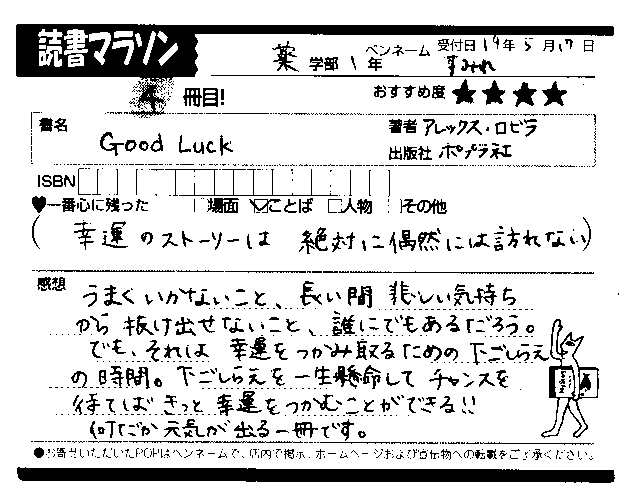 読書マラソン
薬学部 1年 ペンネーム すみれ 受付日 14年 5月17日
4 冊目! おすすめ度 ★★★★
書名 Good Luck 著者 アレックス・ロビラ
出版社 ポプラ社
ISBN
♥一番心に残った □場面 ☑ことば □人物 □その他
(幸運のストーリーは 絶対に偶然には訪れない)
感想 うまくいかないこと、長い間 悲しい気持ち
から 抜け出せないこと、誰にでもあるだろう。
でも、それは 幸運をつかみ取るための 下ごしらえ
の時間。下ごしらえを一生懸命して チャンスを
待てば きっと 幸運をつかむことができる!!
何だか 元気が出る一冊です。
●お寄せいただいたPOPはペンネームで、店内で掲示、ホームページおよび宣伝物への転載をご了承ください。